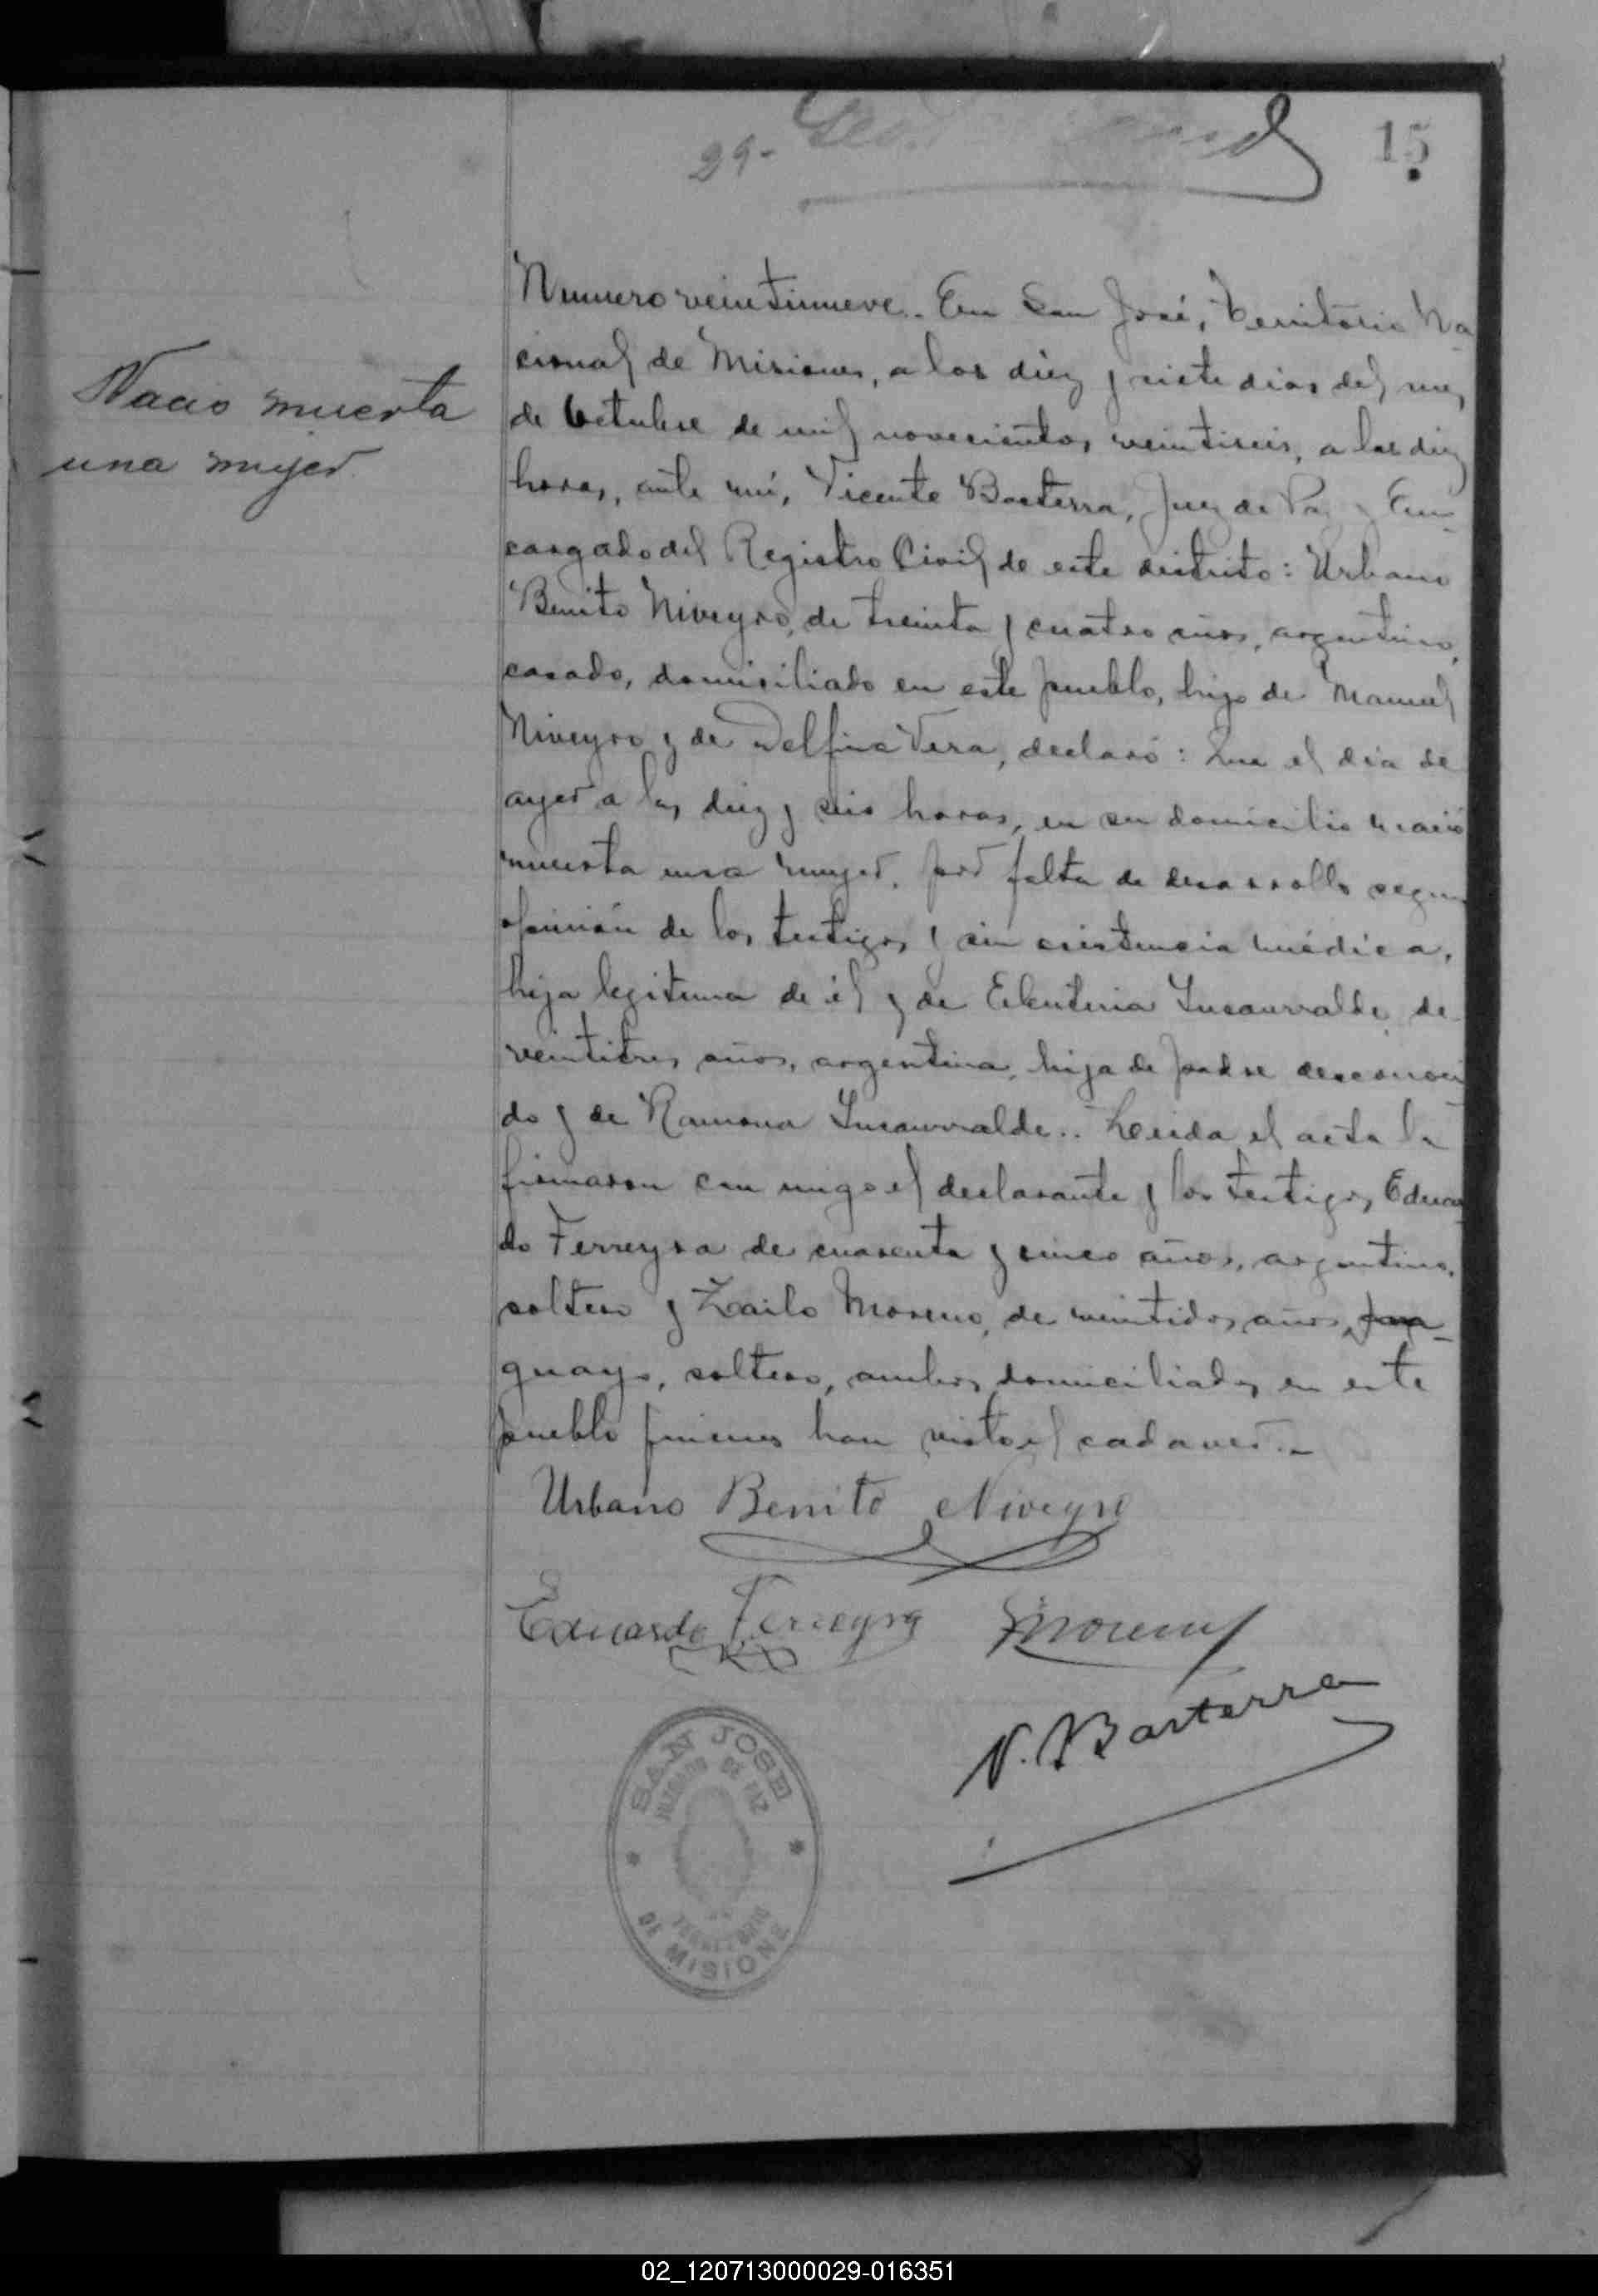 29-
15
Nacio muerta
una mujer
Numero veintinueve.. En San José, Territorio Na
cional de Misiones, a los diez y siete dias del mes
de Octubre de mil novecientos veintiseis, a las diez
horas, ante mi, Vicente Basterra, Juez de Paz y En-
cargado del Registro Civil de este distrito: Urbano
Benito Niveyro, de treinta y cuatro años, argentino,
casado, domiciliado en este pueblo, hijo de Manuel
Niveyro y de Delfina Vera, declaró: Que el dia de
ayer a las diez y seis horas, en su domicilio nació
muerta una mujer, por falta de desarrollo segun
opinión de los testigos y sin asistencia médica,
hija legitima de él y de Eleuteria Insaurralde, de
veintitres años, argentina, hija de padre desconoci
do y de Ramona Insaurralde.. Leida el acta la
firmaron con migo el declarante y los testigos, Eduar
do Ferreyra de cuarenta y cinco años, argentino,
soltero y Zoilo Moreno, de veintidos años, para-
guayo, soltero, ambos domiciliados en este
pueblo quienes han visto el cadaver.-
Urbano Benito Niveyro
Eduardo Ferreyra Moreno
V. Basterra
SAN JOSE
JUZGADO DE PAZ
TERRITORIO
DE MISIONES
02_120713000029-016351